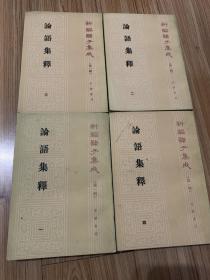 新編諸子集成
論語集釋
三
新編諸子集成
論語集釋
二
新編諸子集成
論語集釋
一
新編諸子集成
論語集釋
四